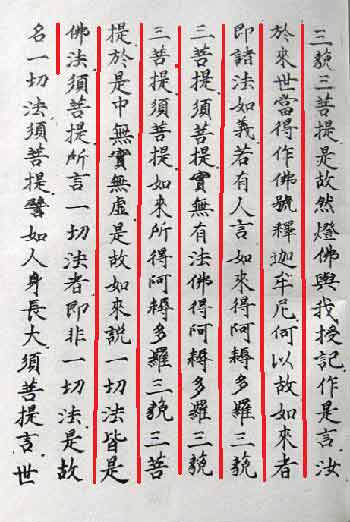 三藐三菩提是故然燈佛與我授記作是言汝
於來世當得作佛號釋迦牟尼何以故如來者
即諸法如義若有人言如來得阿耨多羅三藐
三菩提須菩提實無有法佛得阿耨多羅三藐
三菩提須菩提如來所得阿耨多羅三藐三菩
提於是中無實無虛是故如來說一切法皆是
佛法須菩提所言一切法者即非一切法是故
名一切法須菩提譬如人身長大須菩提言世